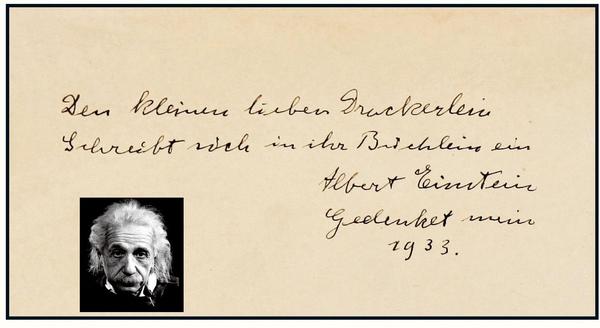 Den kleinen lieben
Schreibt sich in ihr Büchlein ein
Albert Einstein
Gedenket mein
1933.